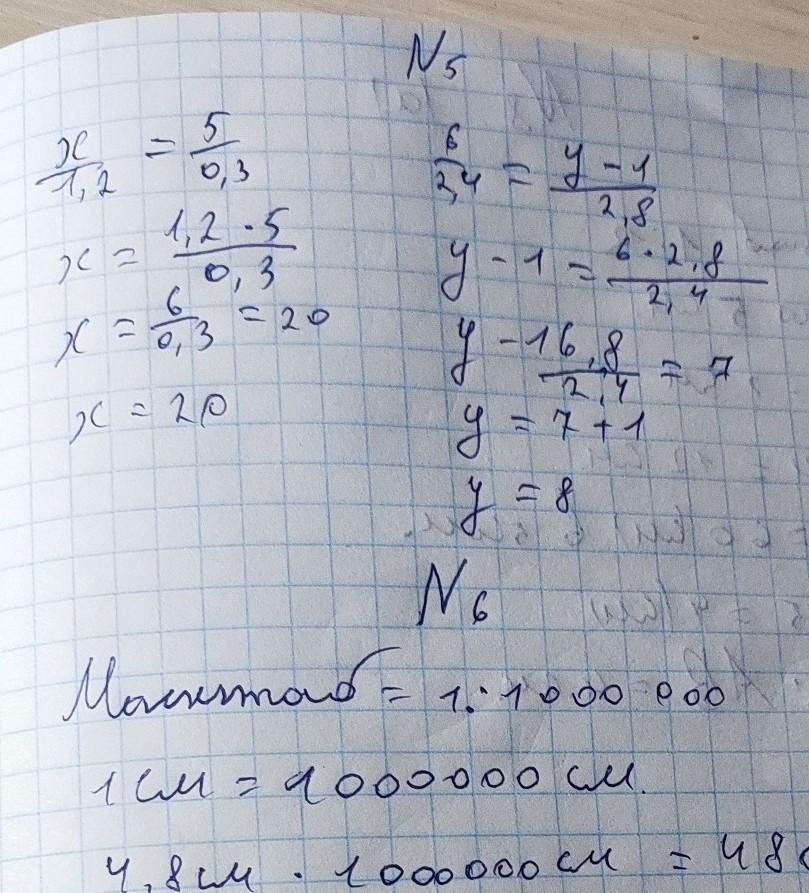 N5
x/1,2 = 5/0,3
x = 1,2 · 5/0,3
x = 6/0,3 = 20
x = 20
6/2,4 = y - 1/2,8
y - 1 = 6 · 2,8/2,4
y - 16,8/2,4 = 7
y = 7 + 1
y = 8
N6
Масштаб = 1 : 1 000 000
1 см = 1000000 см.
4,8 см · 1000000 см = 48